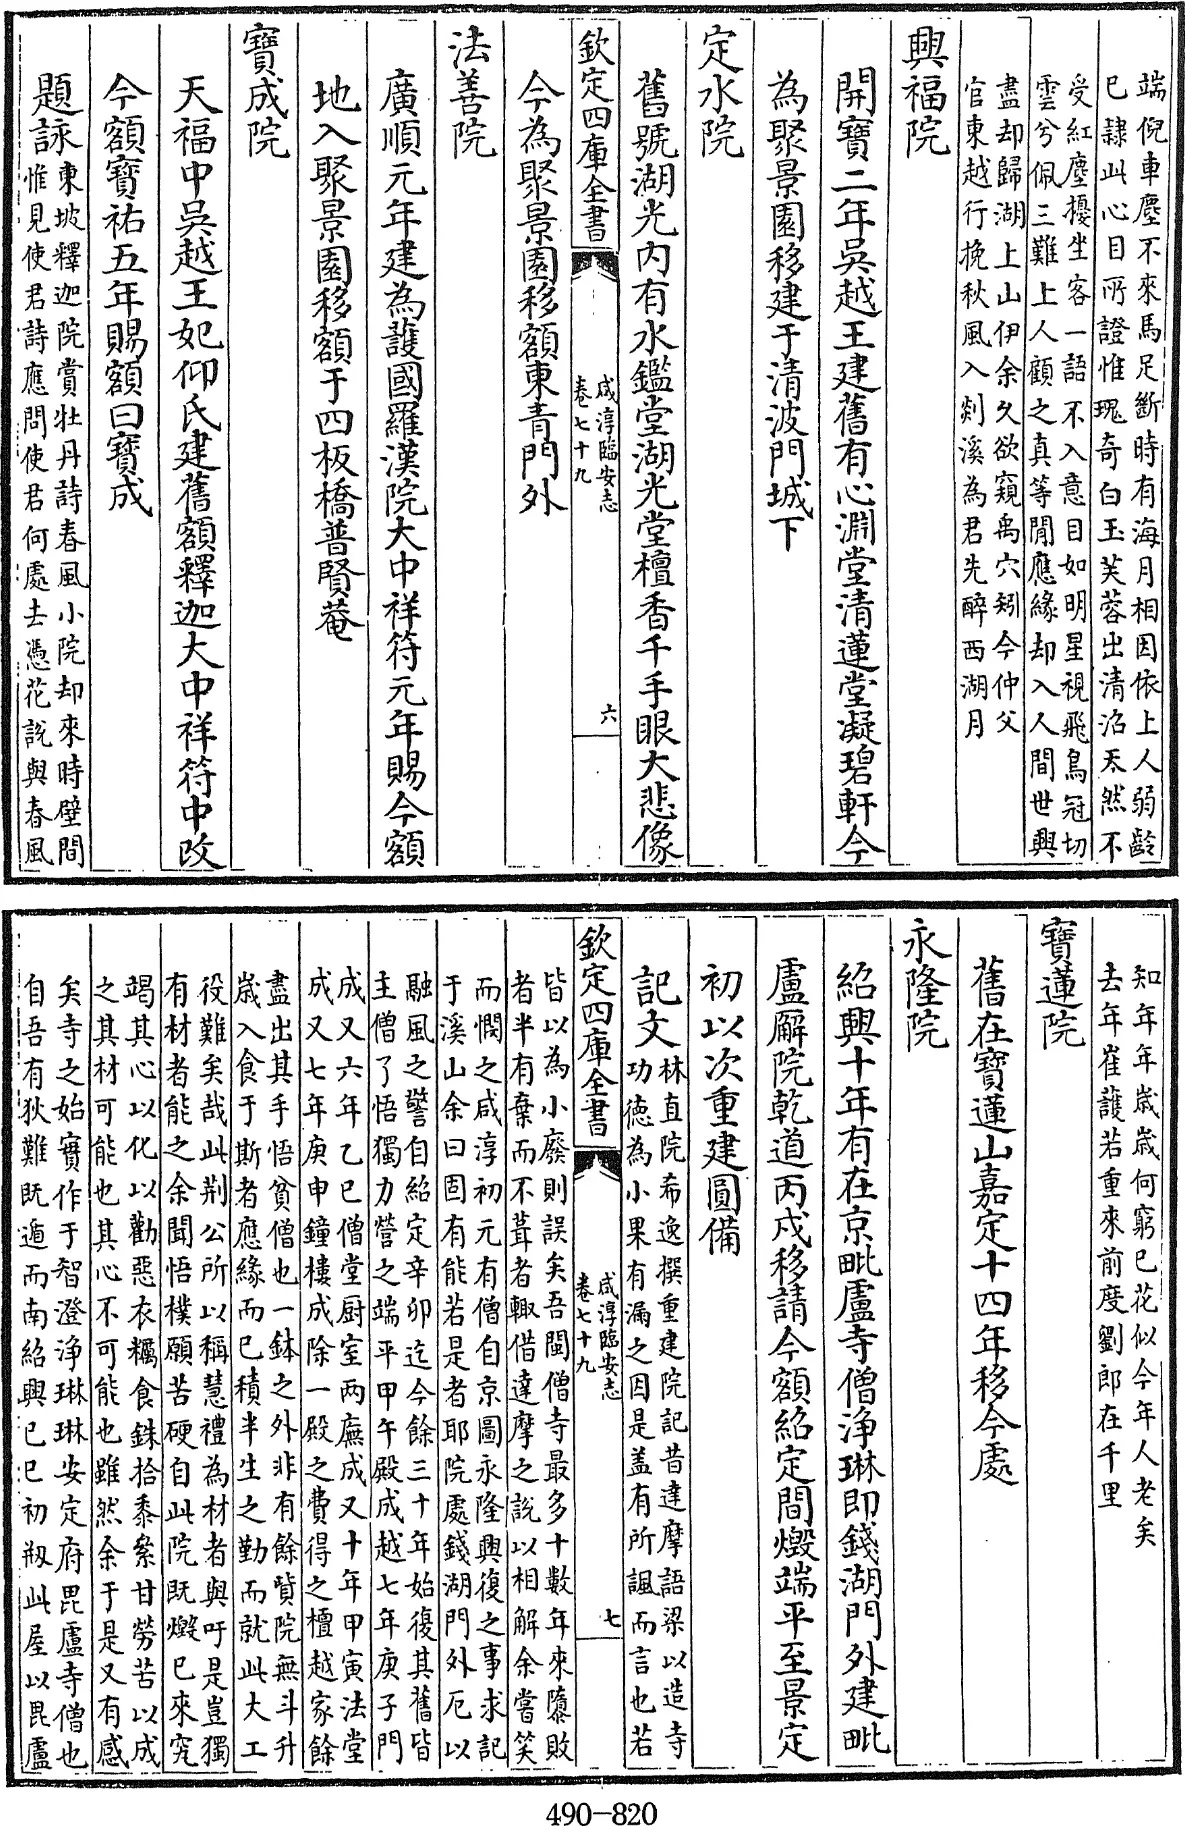 端倪車塵不來馬足斷時有海月相因依上人弱齡
已隷此心目所證惟瑰奇白玉芙蓉出清沼天然不
受紅塵擾坐客一語不入意目如明星視飛鳥冠切
雲兮佩三難上人顧之真等閒應緣却入人間世興
盡却歸湖上山伊余久欲窺禹穴矧今仲父
官東越行挽秋風入剡溪為君先醉西湖月
興福院
開寶二年吳越王建舊有心淵堂清蓮堂凝碧軒今
為聚景園移建于清波門城下
定水院
舊號湖光内有水鑑堂湖光堂檀香千手眼大悲像
欽定四庫全書
咸淳臨安志
卷七十九
六
今為聚景園移額東青門外
法善院
廣順元年建為護國羅漢院大中祥符元年賜今額
地入聚景園移額于四板橋普賢菴
寶成院
天福中吳越王妃仰氏建舊額釋迦大中祥符中改
今額寶祐五年賜額曰寳成
題詠
東坡釋迦院賞牡丹詩春風小院却來時壁間
惟見使君詩應問使君何處去憑花說與春風
知年年歲歲何窮已花似今年人老矣
去年崔護若重來前度劉郎在千里
寶蓮院
舊在寶蓮山嘉定十四年移今處
永隆院
紹興十年有在京毗盧寺僧淨琳即錢湖門外建毗
盧廨院乾道丙戌移請今額紹定間燬端平至景定
初以次重建圓備
記文
林直院希逸撰重建院記昔達摩語梁以造寺
功徳為小果有漏之因是盖有所諷而言也若
欽定四庫全書
咸淳臨安志
卷七十九
七
皆以為小廢則誤矣吾閩僧寺最多十數年來隳敗
者半有棄而不葺者輒借達摩之說以相解余嘗笑
而憫之咸淳初元有僧自京圖永隆興復之事求記
于溪山余曰固有能若是者耶院處錢湖門外厄以
融風之警自紹定辛卯迄今餘三十年始復其舊皆
主僧了悟獨力營之端平甲午殿成越七年庚子門
成又六年乙巳僧堂厨室两廡成又十年甲寅法堂
成又七年庚申鐘樓成除一殿之費得之檀越家餘
盡出其手悟貧僧也一鉢之外非有餘貲院無斗升
歲入食于斯者應緣而已積半生之勤而就此大工
役難矣哉此荆公所以稱慧禮為材者與吁是豈獨
有材者能之余聞悟樸願苦硬自此院既燬已來究
竭其心以化以勸惡衣糲食銖拾黍絫甘勞苦以成
之其材可能也其心不可能也雖然余于是又有感
矣寺之始實作于智澄淨琳琳安定府毘盧寺僧也
自吾有狄難既遁而南紹興已巳初剏此屋以毘盧
490-820